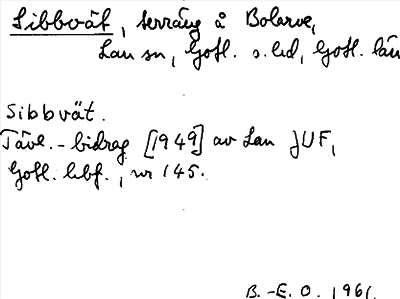 Sibbvät, terräng å Bolarve,
Lau sn, Gotl. s. hd, Gotl. län
Sibbvät.
Tävl.-bidrag [1949] av Lau JUF,
Gotl. hbf., nr 145.
B.-E. O. 1961.